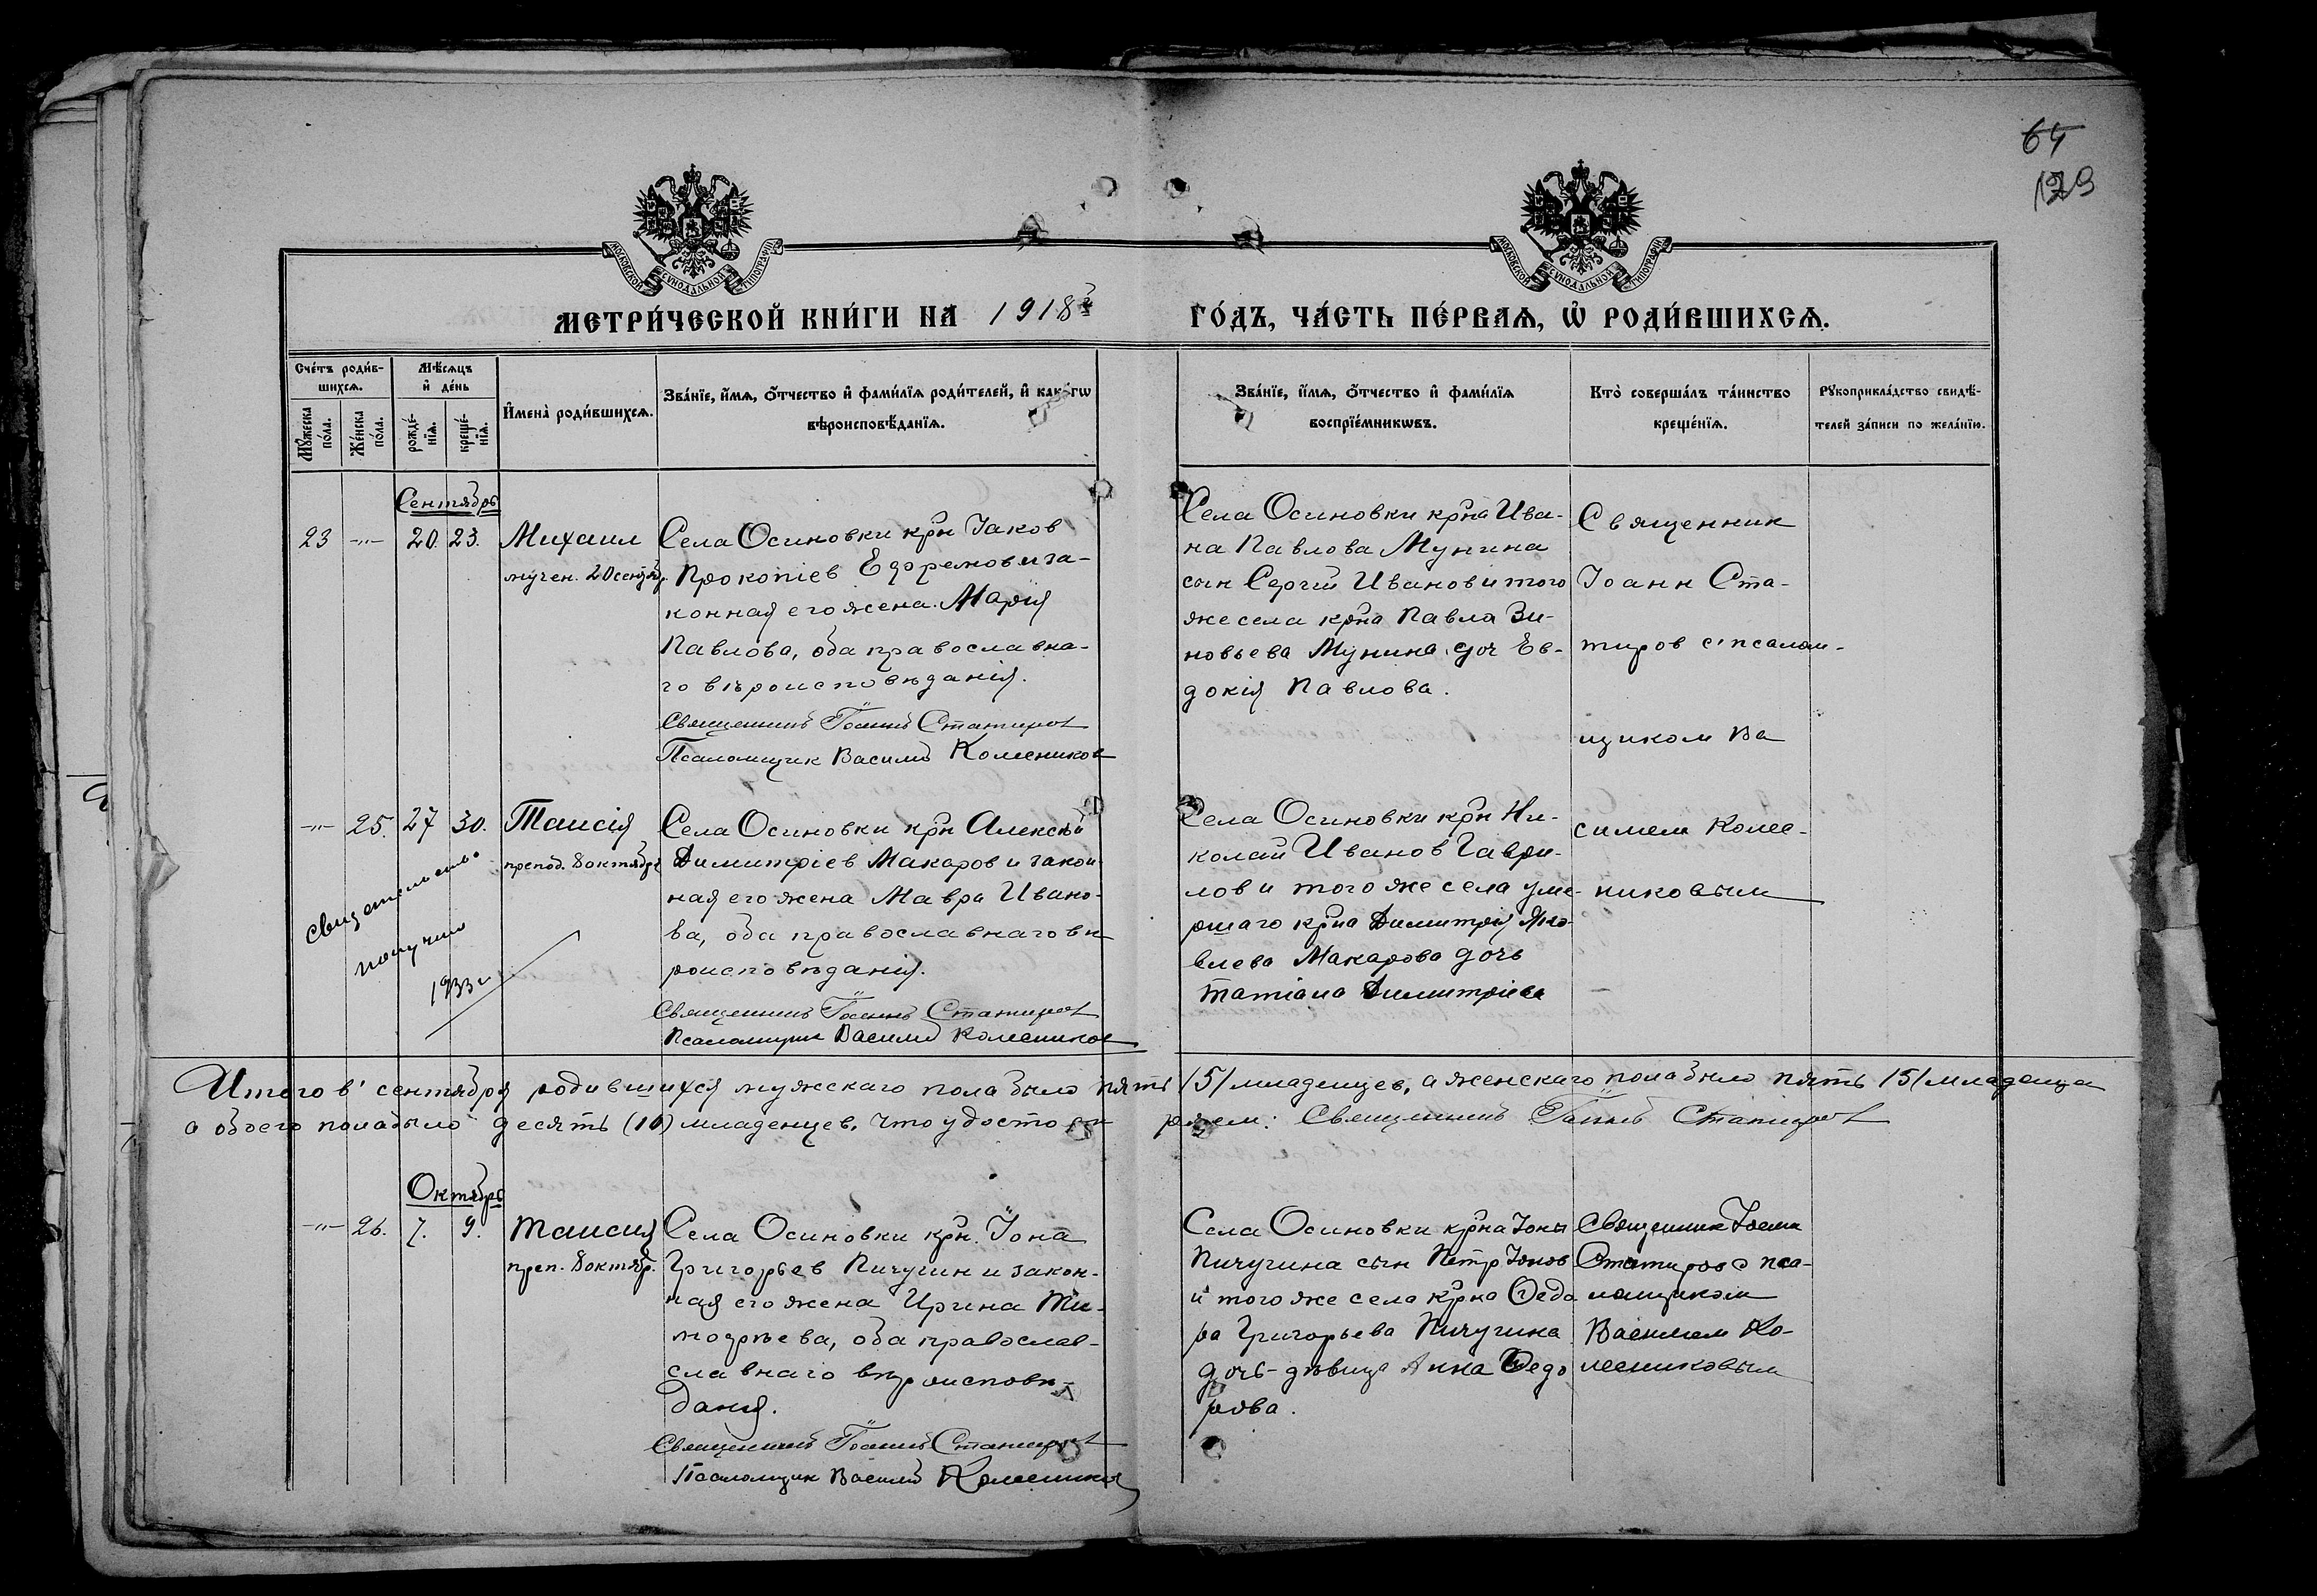 64
129
МОСКОВСКОЙ СѴНОДАЛЬНОЙ ТИПОГРАФІИ
МОСКОВСКОЙ СѴНОДАЛЬНОЙ ТИПОГРАФІИ
МЕТРИ́ЧЕСКОЙ КНИ́ГИ НА 1918 ГО́ДЪ, ЧА́СТЬ ПЕ́РВАѦ, Ѡ҆ РОДИ́ВШИХСѦ.
Сче́тъ роди́в-
шихсѧ.
Мꙋ́жеска
по́ла.
Же́нска
по́ла.
Мѣ́сѧцъ
и҆ де́нь
рожде́-
нїѧ.
креще́-
нїѧ.
И҆мена̀ роди́вшихсѧ.
Зва́нїе, и҆́мѧ, ѻ҆́тчество и҆ фами́лїѧ роди́телей, и҆ како́гѡ
вѣроисповѣ́данїѧ.
Зва́нїе, и҆́мѧ, ѻ҆́тчество и҆ фами́лїѧ
воспрїе́мникѡвъ.
Кто̀ соверша́лъ та́инство
креще́нїѧ.
Рꙋкоприкла́дство свидѣ́-
телей за́писи по жела́нїю.
Сентябрь
23 -"- 20. 23.
Михаил
мучен. 20 сентяб.
Села Осиновки крн Іаков
Прокопіев Ефремов и за-
конная его жена Марія
Павлова, оба православна-
го вѣроисповѣданія.
Священникъ Іоаннъ Статиров
Псаломщик Василий Колесников
Села Осиновки крна Ива-
на Павлова Мунина
сын Сергій Иванов и того
же села крна Павла Зи-
новьева Мунина доч Ев-
докія Павлова.
Священник
Іоанн Ста-
тиров с псалом-
щиком Ва
силием Колес-
никовым
-"- 25. 27 30.
Таисія
препод. 8 октября
свидетельство
получил
1933 г
Села Осиновки крн Алексѣй
Димитріев Макаров и закон-
ная его жена Мавра Ивано-
ва, оба православнаго вѣ
роисповѣданія.
Священникъ Іоаннъ Статиров
Псаломщик Василий Колесников
Села Осиновки крн Ни-
колай Иванов Гаври-
лов и того же села уме-
ршаго крна Димитрія Яко-
влева Макарова дочь
Татіана Димитріева
Итого в' сентября родившихся мужскаго пола было пять /5/ младенцев, а женскаго пола было пять /5/ младенца
а обоего пола было десять (10) младенцев, что удостовѣ ряем: Священникъ Іоаннъ Статиров
Октябрь
-"- 26. 7. 9.
Таисия
преп. 8 октябр.
Села Осиновки крн. Іона
Григорьев Пичугин и закон-
ная его жена Ирина Ти-
мофѣева, оба православ-
славнаго вѣроисповѣ-
дания.
Священникъ Іоаннъ Статиров
Псаломщик Василий Колесников
Села Осиновки крна Іоны
Пичугина сын Петр Іонов
и того же села крна Ѳедо
ра Григорьева Пичугина
дочь-дѣвица Анна Ѳедо
рова.
Священник Іоанн
Статиров с пса-
ломщиком
Василием Ко-
лесниковым